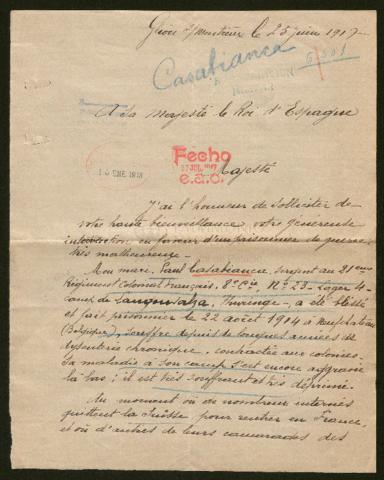 Glion s/Montreux le 25 juin 1917
Casabianca
6.501
A Sa Majesté le Roi d'Espagne
Fecho
17 JUL. 1917
e.a.c.
10 ENE. 1918
Majesté
J'ai l'honneur de solliciter de
votre haute bienveillance, votre généreuse
intervention en faveur d'un prisonnier de guerre
très malheureux -
Mon mari, Paul Casabianca, sergent au 21ème
Régiment Colonial Français, 8e Cie, No 23 - Lager 4 -
camp de Langensalza, Thuringe -, a été blessé
et fait prisonnier le 22 août 1914 à Neufchateau
(Belgique), souffre depuis de longues années de
dysenterie chronique, contractée aux colonies.
Sa maladie à son camp s'est encore aggravée
là bas; il est très souffrant et très déprimé.
Au moment où de nombreux internés
quittent la Suisse, pour rentrer en France,
et où d'autres de leurs camarades des